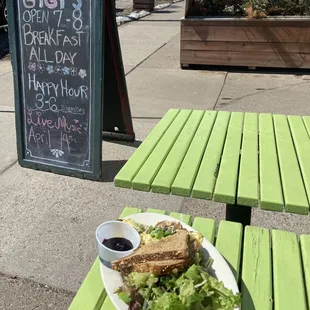 GiGi's
OPEN 7-8
BREAKFAST
ALL DAY
HAPPY HOUR
3-6
LIVE MUSIC
APRIL 19th